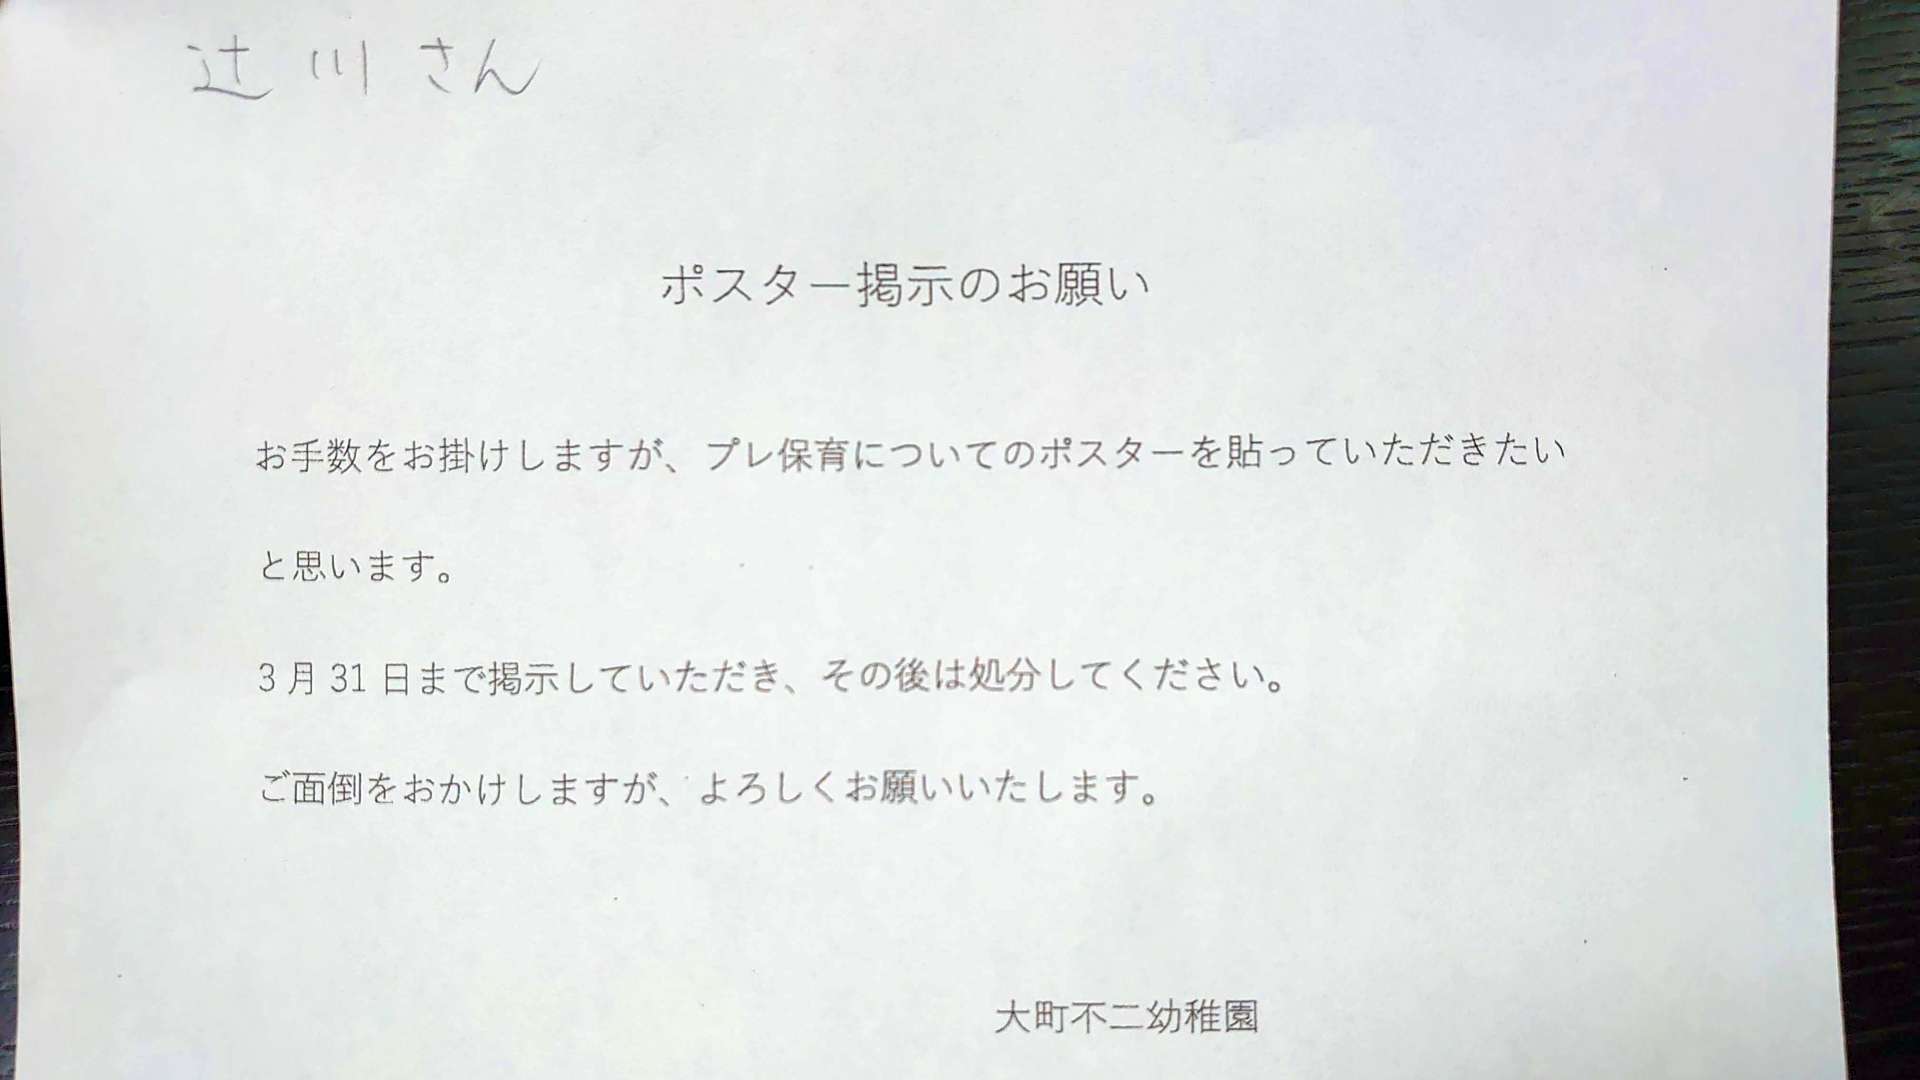 辻川さん
ポスター掲示のお願い
お手数をお掛けしますが、プレ保育についてのポスターを貼っていただきたい
と思います。
3月31日まで掲示していただき、その後は処分してください。
ご面倒をおかけしますが、よろしくお願いいたします。
大町不二幼稚園